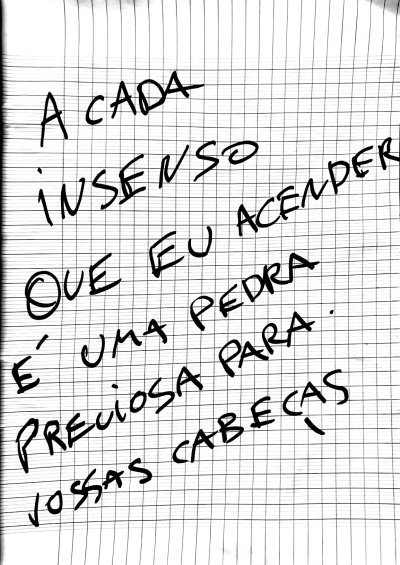 A CADA
INSENSO
QUE EU ACENDER
É UMA PEDRA
PRECIOSA PARA.
VOSSAS CABEÇAS